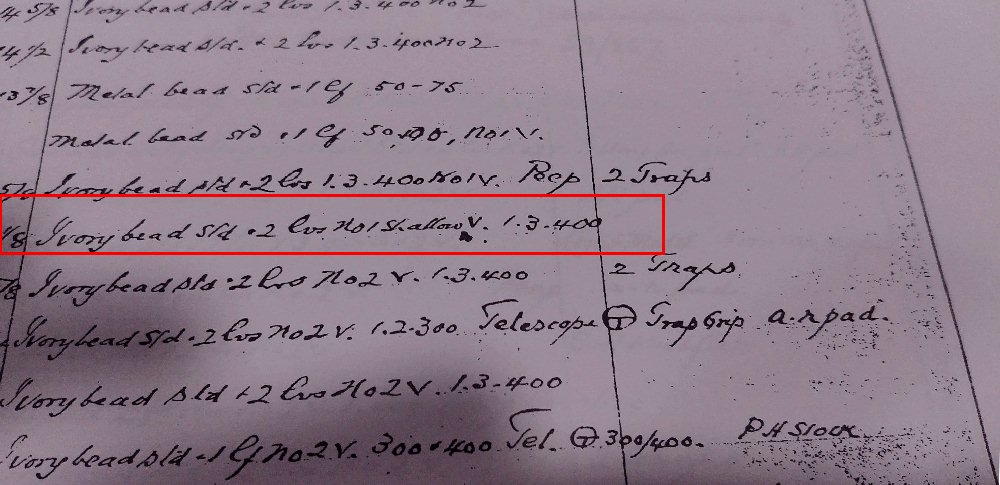 14 5/8 Ivory bead Std + 2 lvs 1.3.400 No 2
14 1/2 Ivory bead Std. + 2 lvs 1.3.400 No 2
13 7/8 Metal bead Std + 1 lf 50-75
Metal bead Std + 1 lf 50, No 1 V.
Ivory bead Std + 2 lvs 1.3.400 No 1 V. Peep 2 Traps
/8 Ivory bead Std + 2 lvs No 1 Shallow V. 1.3.400
7/8 Ivory bead Std + 2 lvs No 2 V. 1.3.400 2 Traps
Ivory bead Std + 2 lvs No 2 V. 1.2.300 Telescope T Trap Grip a. r pad.
Ivory bead Std + 2 lvs No 2 V. 1.3.400
Ivory bead Std + 1 lf No 2 V. 300+400 Tel. T 300/400. P H Stock